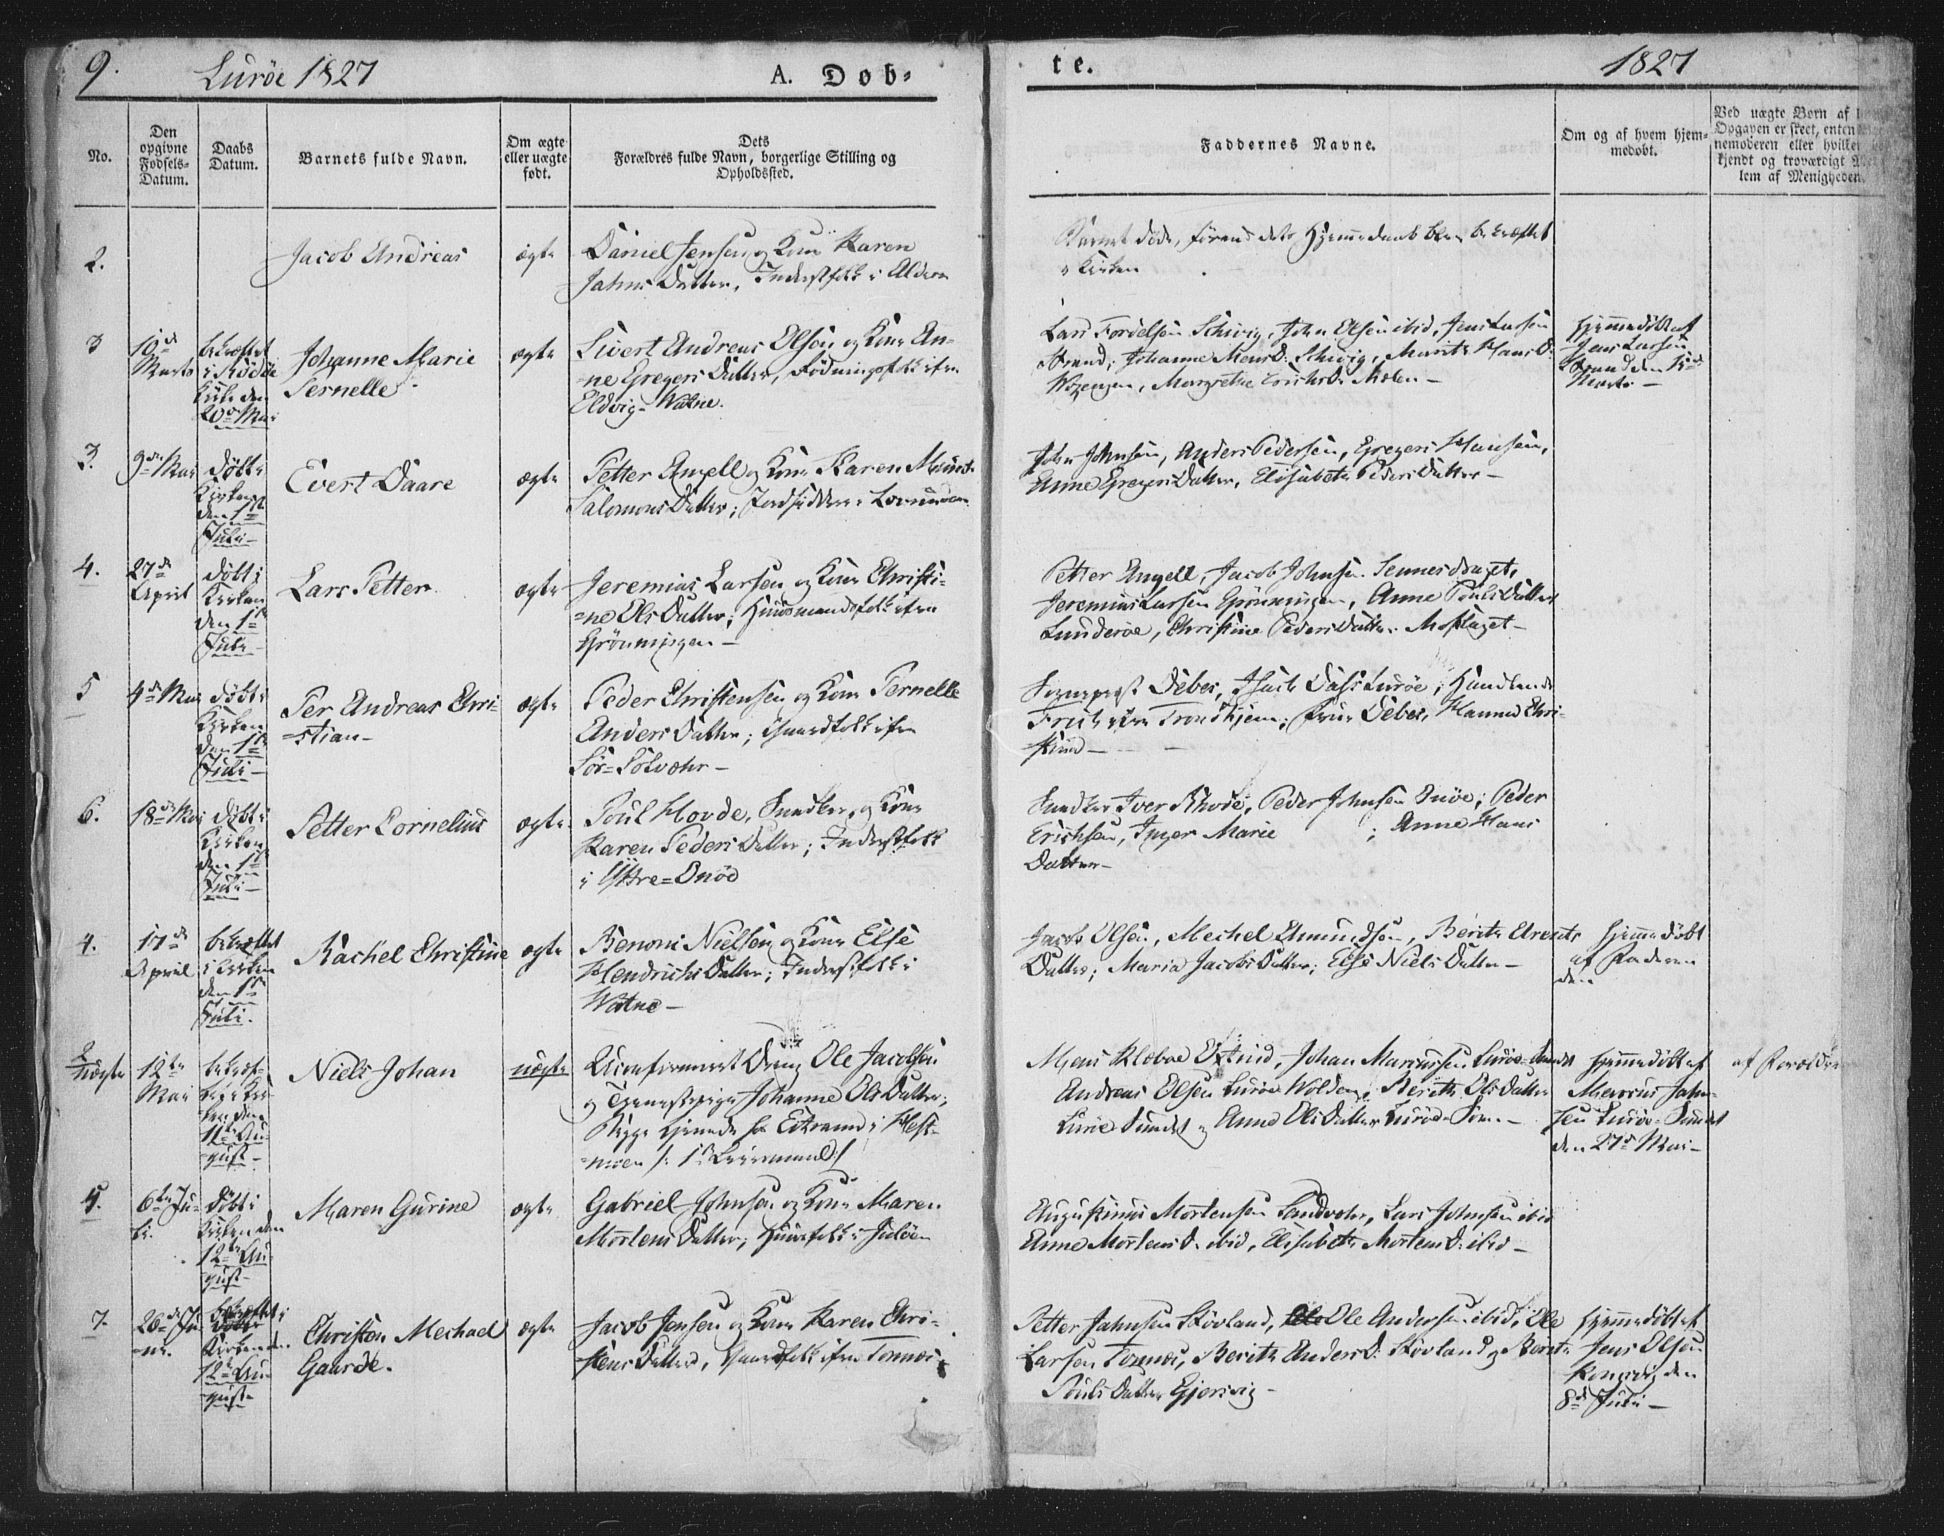 9. Lurøe 1827 A. Dob-
te. 1827
No.
Den opgivne Fødsels-Datum.
Daabs Datum.
Barnets fulde Navn.
Om ægte eller uægte født.
Dets Forældres fulde Navn, borgerlige Stilling og Opholdssted.
Faddernes Navne.
Om og af hvem hjem-
medøbt.
Ved uægte Børn af
Opgaven er skeet, enten
nemoderen eller hvilket
kjendt og troværdigt
lem af Menigheden.
2.
Jacob Andreas
ægte
Daniel Jensen og Kone Karen
Jahns Datter, Inderstfolk i Alderen
Barnet døde, førend dets Hjemmedaab blev bekræftet
i Kirken
3
10de
Marts
bekræftet
i Rødøe
Kirke den
20de Mai
Johanne Marie
Pernelle
ægte
Sivert Andreas Olsen og Kone An-
-ne Gregers Datter, Fødningsfolk ifra
Eldvig-Watne.
Lars Tordelsen Schivig, John Olsen ibid, Jens Larsen
Strand; Johanne Mons D. Schivig, Marith Hans D.
Margrethe Erichs D.
Hjemmedøbt af
Jens Larsen
Strand den
Marts -
3.
9de Mai
døbt i
Kirken
den 1ste
Juli -
Evert Daare
ægte
Petter Angell og Kone Karen
Salomons Datter; Jordsidder i Lovunden
John Johnsen, Anders Pedersen, Gregers Hansen,
Anne Gregers Datter, Elisabeth Peders Datter -
4.
27de
April
døbt i
Kirken
den 1ste
Juli -
Lars Petter
ægte
Jeremias Larsen og Kone Christi-
-ne Ols Datter; Huusmandsfolk ifra
Grönningen -
Petter Angell, Jacob Johnsen Sennesdraget,
Jeremias Larsen Grönningen, Anne Pouls Datter
Lunderøe, Christine Peders Datter Moflaget -
5
4de Mai
døbt i
Kirken
den 1ste
Juli -
Per Andreas Chri-
-stian -
ægte
Peder Christensen og Kone Pernelle
Anders Datter; Gaardfolk ifra
Sör=Solvær -
Sogneprest Debes, Dass Lurøe; Handlende
ifra Trondhjem; Frue Debes, Hanna Chri-
stine -
6.
18de Mai
døbt i
Kirken
den 1ste
Juli -
Petter Cornelius
ægte
Poul Hovde, Snedker, og Kone
Karen Peders Datter; Inderstfolk
i Yttre=Onöe
Snedker Iver Rhode, Peder Johnsen Onöe; Peder
Erichsen, Inger Marie ; Anne Hans
Datter -
4.
17de
April
bekræftet
i Kirken
den 1ste
Juli.
Rachel Christine
ægte
Benoni Nielsen og Kone Else
Hendrichs Datter; Inderstfolk i
Watne -
Jacob Olsen, Mechel Amundsen, Berith Arents
Datter; Maria Jacobs Datter; Else Niels Datter -
Hjemmedøbt
af Faderen
den
2
uægte
12te
Mai
bekræf-
tet i Kir-
ken den
12te Au-
gust -
Niels Johan
uægte
Uconfirmeret Dreng Ole Jacobsen
og Tjenestepige Johanne Ols Datter;
Begge tjenende hos i Hest-
-moen /: 1ste Leiermaal :/
Mons Klæboe Johan Marcussen Lurøe-Sundet
Andreas Olsen Lurøe Wolden, Berith Ols Datter
Lurøe Sundet og Anne Ols Datter Lurøe -
Hjemmedøbt af
Marcus Jahn-
sen Lurøe-Sundet
den 27de Mai -
af Forældrene
5.
6te Ju-
li.
Døbt i
Kirken den
12te Au-
gust -
Maren Gurine
ægte
Gabriel Johnsen og Kone Maren
Mortens Datter, Huusfolk i Juløen
Augustinus Mortensen Sandvær, Lars Johnsen ibid
Anne Mortens D. ibid, Elisabeth Mortens D. ibid -
7.
26de Ju-
-ni.
bekræftet i
Kirken den
12te Au-
gust -
Christen Mechael
Gaarde.
ægte
Jacob Jensen og Kone Karen Chri-
stens Datter, Gaardfolk ifra Tonnes
Petter Jahnsen Skövland, Ole Andersen ibid, Ole
Larsen Tonnes, Berith Anders D. Skövland og Berith
Pouls Datter Gjersvig -
Hjemmedøbt af
Jens Olsen
Kongsvig den
8de Juli -